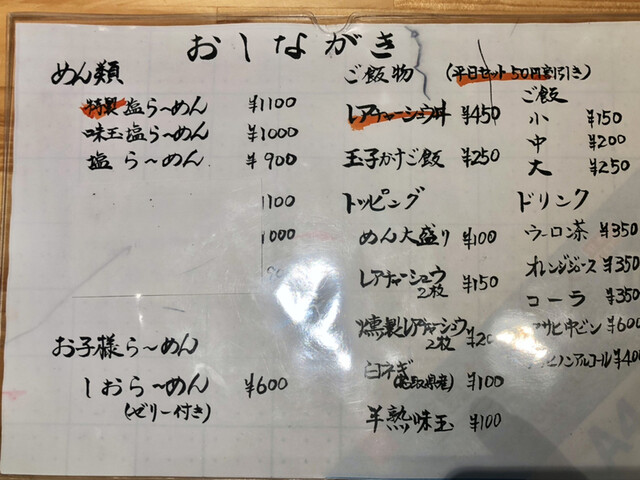 おしながき
めん類
特製塩ら〜めん ¥1100
味玉塩ら〜めん ¥1000
塩ら〜めん ¥900
1100
1000
お子様ら〜めん
しおら〜めん ¥600
(ゼリー付き)
ご飯物 (平日セット50円割引き)
レアチャーシュウ丼 ¥450
玉子かけご飯 ¥250
ご飯
小 ¥150
中 ¥200
大 ¥250
トッピング
めん大盛り ¥100
レアチャーシュウ
2枚 ¥150
燻製レアチャーシュウ
2枚
白ネギ
(鳥取県産) ¥100
半熟味玉 ¥100
ドリンク
ウーロン茶 ¥350
オレンジジュース ¥350
コーラ ¥350
アサヒ中ビン ¥600
アサヒノンアルコール ¥400